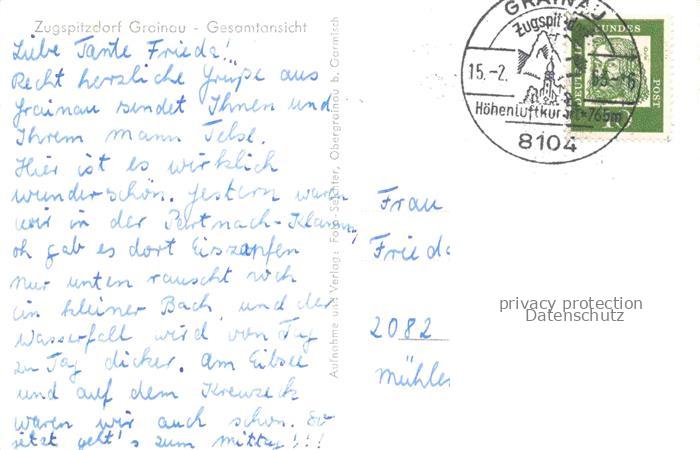 Zugspitzdorf Grainau - Gesamtansicht
Liebe Tante Frieda!
Recht herzliche Grüße aus
Grainau sendet Ihnen und
Ihrem Mann Telse.
Hier ist es wirklich
wunderschön. Gestern waren
wir in der Partnach-Klamm,
oh gab es dort Eiszapfen
nur unten rauscht noch
ein kleiner Bach und der
Wasserfall wird von Tag
zu Tag dicker. Am Eibsee
und auf dem Kreuzeck
waren wir auch schon. So
jetzt geht's zum Mittag!!!
Aufnahme und Verlag: Foto-Schöter, Obergrainau b. Garmisch
GRAINAU
Zugspitzdorf
15.-2.
Höhenluftkurort 765m
8104
POST
Frau
Frieda
2082
privacy protection
Datenschutz